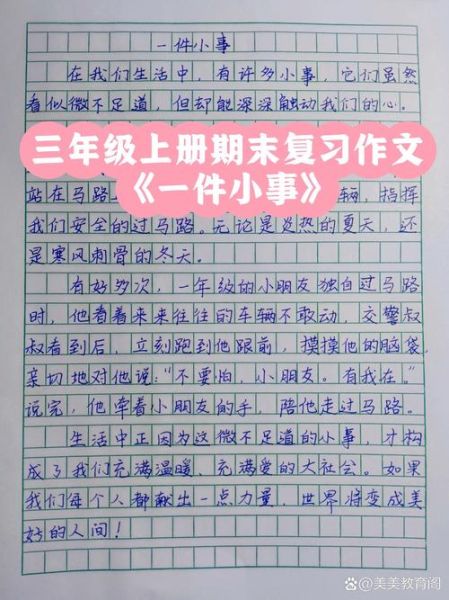 一件小事
在我们生活中，有许多小事，它们虽然
看似微不足道，但却能深深触动我们的心。
三年级上册期末复习作文
《一件小事》
站在马路
辆，指挥
我们安全的过马路。无论是炎热的夏天，还
是寒风刺骨的冬天。
有好多次，一年级的小朋友独自过马路
时，他看着来来往往的车辆不敢动，交警叔
叔看到后，立刻跑到他跟前，摸摸他的脑袋，
亲切地对他说：“不要怕，小朋友。有我在。”
说完，他牵着小朋友的手，陪他走过马路。
生活中正因为这微不足道的小事，才构
成了我们充满温暖、充满爱的大社会。如果
我们每个人都献出一点力量，世界将变成美
好的人间！
@美美教育阁